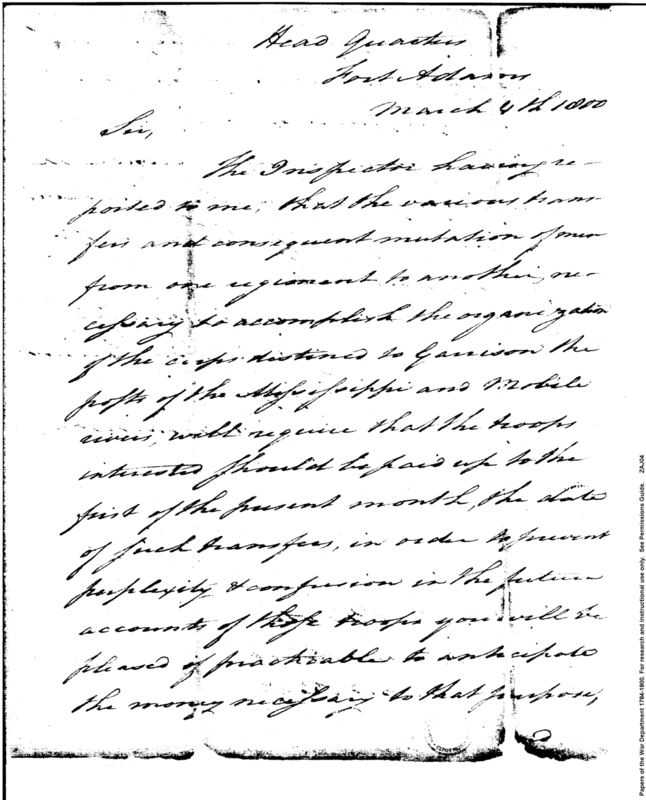 Head Quarters
Fort Adams
March 4th 1800
Sir,
The Inspector having re-
ported to me, that the various trans-
fers and consequent mutation of men
from one regiment to another, ne-
cessary to accomplish the organization
of the corps distined to Garrison the
posts of the Mississippi and Mobile
rivers, will require that the troops
interested should be paid up to the
first of the present month, the date
of such transfers, in order to prevent
perplexity & confusion in the future
accounts of those troops you will be
pleased if practicable to anticipate
the money necessary to that purpose,
Papers of the War Department 1784-1800. For research and instructional use only. See Permissions Guide. ZAJ04